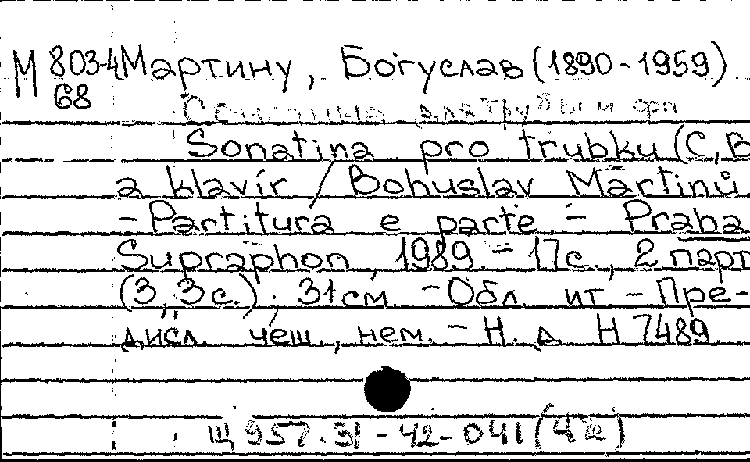 М 803-4 Мартину, Богуслав (1890-1959)
68
Сонатина для трубы и фп
Sonatina pro trubku (C, B
a klavír / Bohuslav Martinů
- Partitura e parte - Praha
Supraphon, 1989 - 17с., 2 парт
(3, 3с.); 31см - Обл. ит - Пре-
дисл. чеш., нем. - Н. д. Н 7489
Щ957.31-42-041(4Ш)